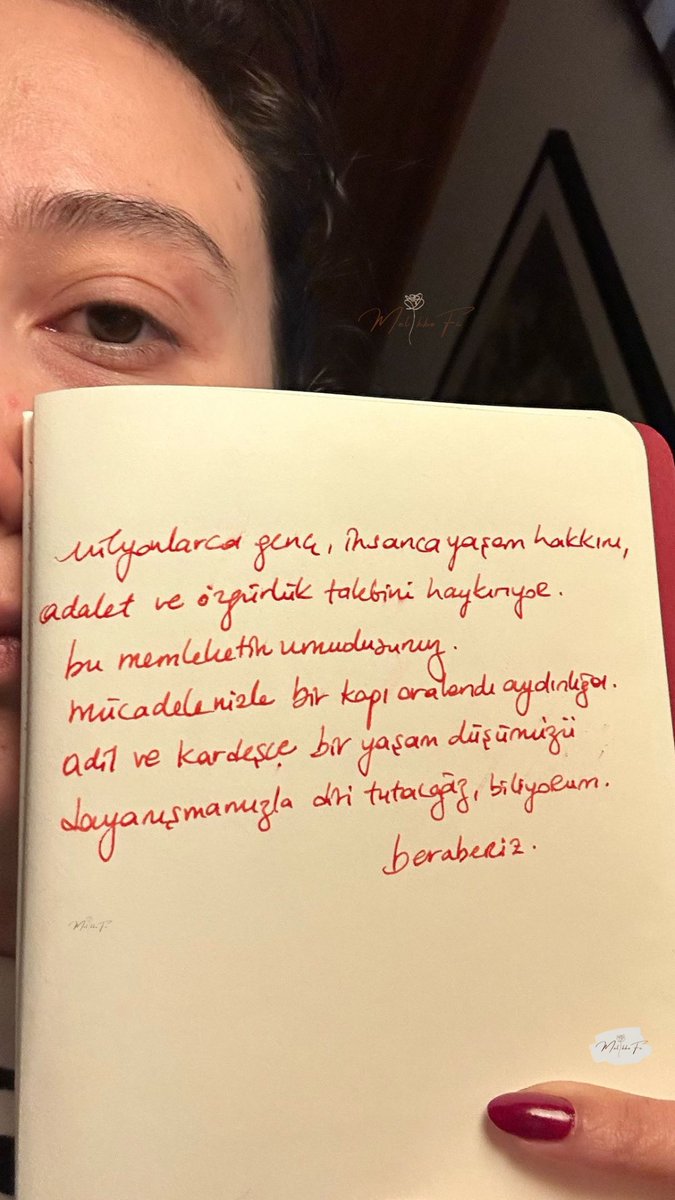 milyonlarca genç, insanca yaşam hakkını,
adalet ve özgürlük talebini haykırıyor.
bu memleketin umudusunuz.
mücadelenizle bir kapı aralandı aydınlığa.
adil ve kardeşçe bir yaşam düşümüzü
dayanışmamızla diri tutacağız, biliyorum.
beraberiz.